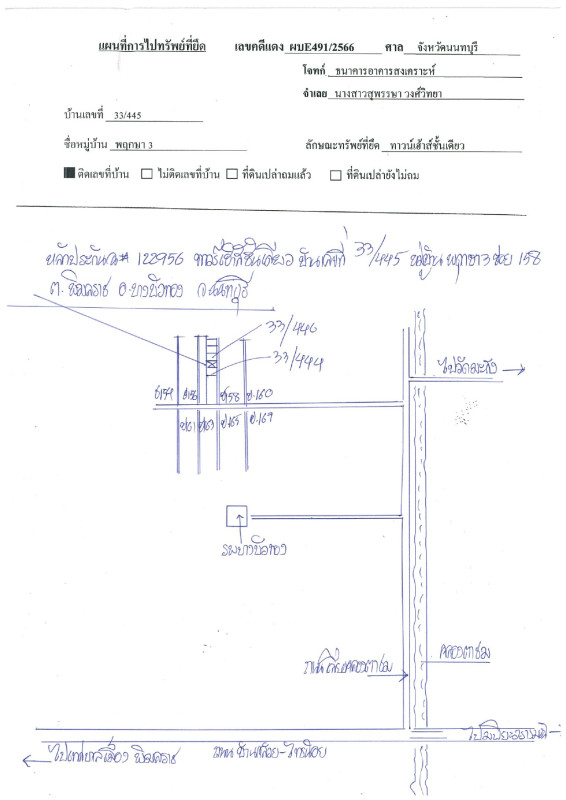 แผนที่การไปทรัพย์ที่ยึด เลขคดีแดง ผบE491/2566 ศาล จังหวัดนนทบุรี
โจทก์ ธนาคารอาคารสงเคราะห์
จำเลย นางสาวสุพรรษา วงศ์วิทยา
บ้านเลขที่ 33/445
ชื่อหมู่บ้าน พฤกษา 3 ลักษณะทรัพย์ที่ยึด ทาวน์เฮ้าส์ชั้นเดียว
ติดเลขที่บ้าน ไม่ติดเลขที่บ้าน ที่ดินเปล่าถมแล้ว ที่ดินเปล่ายังไม่ถม
หลักประกัน# 122956 ชั้นเดียว บ้านเลขที่ 33/445 หมู่บ้าน พฤกษา 3 ซอย 158
ต. พิมลราช อ.บางบัวทอง จ.นนทบุรี
33/446
33/444
ซ.160
ซ.165 ซ.169
รพ.บางบัวทอง
ถนนเลียบคลองตาชม
คลองตาชม
ไปเทศบาลเมือง พิมลราช
ถนน บ้านกล้วย-ไทรน้อย